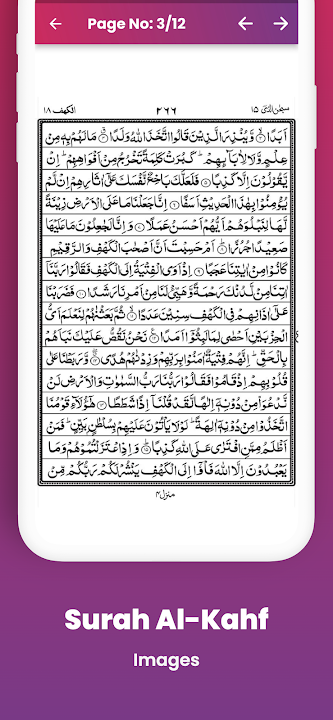 Page No: 3/12
الكهف ١٨
٢٦٦
سبحٰن الذی ١٥
اَبَدًا ۙ﴿۳﴾ وَّیُنْذِرَ الَّذِیْنَ قَالُوا اتَّخَذَ اللّٰهُ وَلَدًا ﴿۴﴾ مَا لَهُمْ بِهٖ مِنْ
عِلْمٍ وَّلَا لِاٰبَآىِٕهِمْ ؕ كَبُرَتْ كَلِمَةً تَخْرُجُ مِنْ اَفْوَاهِهِمْ ؕ اِنْ
یَّقُوْلُوْنَ اِلَّا كَذِبًا ﴿۵﴾ فَلَعَلَّكَ بَاخِعٌ نَّفْسَكَ عَلٰۤی اٰثَارِهِمْ اِنْ لَّمْ
یُؤْمِنُوْا بِهٰذَا الْحَدِیْثِ اَسَفًا ﴿۶﴾ اِنَّا جَعَلْنَا مَا عَلَی الْاَرْضِ زِیْنَةً
لَّهَا لِنَبْلُوَهُمْ اَیُّهُمْ اَحْسَنُ عَمَلًا ﴿۷﴾ وَ اِنَّا لَجٰعِلُوْنَ مَا عَلَیْهَا
صَعِیْدًا جُرُزًا ؕ﴿۸﴾ اَمْ حَسِبْتَ اَنَّ اَصْحٰبَ الْكَهْفِ وَ الرَّقِیْمِ
كَانُوْا مِنْ اٰیٰتِنَا عَجَبًا ﴿۹﴾ اِذْ اَوَی الْفِتْیَةُ اِلَی الْكَهْفِ فَقَالُوْا رَبَّنَاۤ
اٰتِنَا مِنْ لَّدُنْكَ رَحْمَةً وَّهَیِّئْ لَنَا مِنْ اَمْرِنَا رَشَدًا ﴿۱۰﴾ فَضَرَبْنَا
عَلٰۤی اٰذَانِهِمْ فِی الْكَهْفِ سِنِیْنَ عَدَدًا ﴿۱۱﴾ ثُمَّ بَعَثْنٰهُمْ لِنَعْلَمَ اَیُّ
الْحِزْبَیْنِ اَحْصٰی لِمَا لَبِثُوْۤا اَمَدًا ﴿۱۲﴾ نَحْنُ نَقُصُّ عَلَیْكَ نَبَاَهُمْ
بِالْحَقِّ ؕ اِنَّهُمْ فِتْیَةٌ اٰمَنُوْا بِرَبِّهِمْ وَ زِدْنٰهُمْ هُدًی ﴿۱۳﴾ وَّ رَبَطْنَا عَلٰی
قُلُوْبِهِمْ اِذْ قَامُوْا فَقَالُوْا رَبُّنَا رَبُّ السَّمٰوٰتِ وَ الْاَرْضِ لَنْ
نَّدْعُوَا۠ مِنْ دُوْنِهٖۤ اِلٰهًا لَّقَدْ قُلْنَاۤ اِذًا شَطَطًا ﴿۱۴﴾ هٰۤؤُلَآءِ قَوْمُنَا
اتَّخَذُوْا مِنْ دُوْنِهٖۤ اٰلِهَةً ؕ لَوْ لَا یَاْتُوْنَ عَلَیْهِمْ بِسُلْطٰنٍۭ بَیِّنٍ ؕ فَمَنْ
اَظْلَمُ مِمَّنِ افْتَرٰی عَلَی اللّٰهِ كَذِبًا ؕ﴿۱۵﴾ وَ اِذِ اعْتَزَلْتُمُوْهُمْ وَ مَا
یَعْبُدُوْنَ اِلَّا اللّٰهَ فَاْوٗۤا اِلَی الْكَهْفِ یَنْشُرْ لَكُمْ رَبُّكُمْ مِّنْ
منزل ۴
Surah Al-Kahf
Images